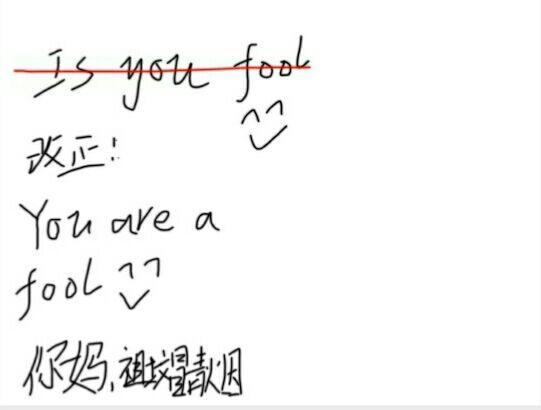 Is you fool
改正:
You are a
fool
你妈,祖坟冒青烟